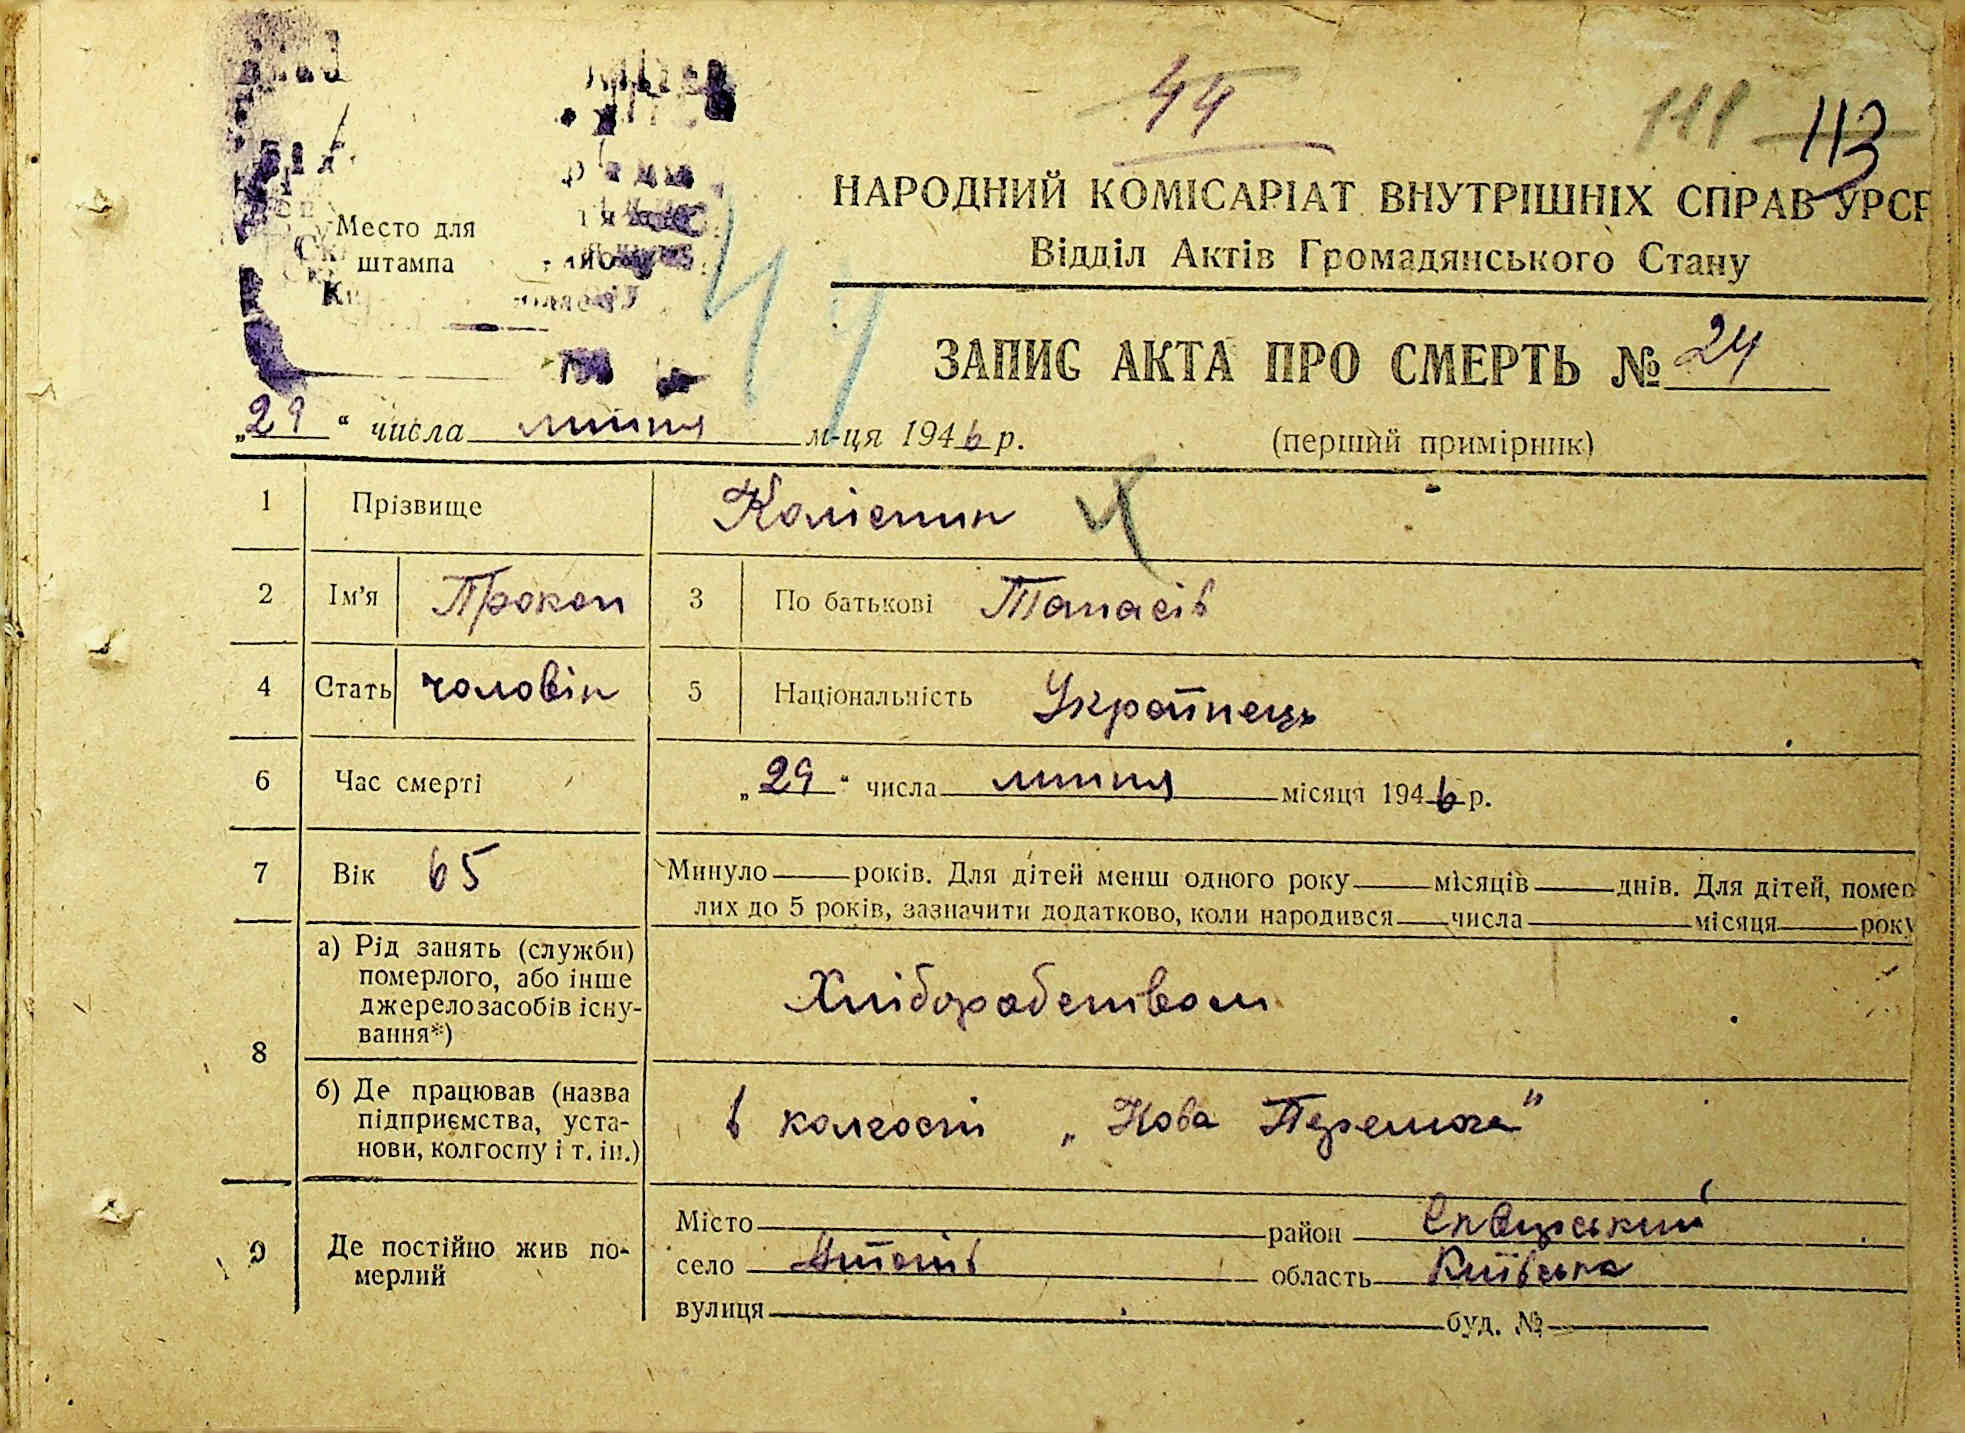 44
111 113
НАРОДНИЙ КОМІСАРІАТ ВНУТРІШНІХ СПРАВ УРСР
Відділ Актів Громадянського Стану
Место для
штампа
44
ЗАПИС АКТА ПРО СМЕРТЬ № 24
„29“ числа липня м-ця 1946 р.
(перший примірник)
1 Прізвище
2 Ім'я Прокоп 3 По батькові Танасів
4 Стать чоловік 5 Національність Українець
6 Час смерті „29“ числа липня місяця 1946 р.
7 Вік 65 Минуло — років. Для дітей менш одного року — місяців — днів. Для дітей, помер
лих до 5 років, зазначити додатково, коли народився — числа — місяця — року
8 а) Рід занять (служби)
померлого, або інше
джерело засобів існу-
вання*)
Хліборобством
б) Де працював (назва
підприємства, уста-
нови, колгоспу і т. ін.)
в колгоспі „Нова Перемога"
9 Де постійно жив по-
мерлий
Місто — район Сквирський
село Антонів область Київська
вулиця — буд. № —